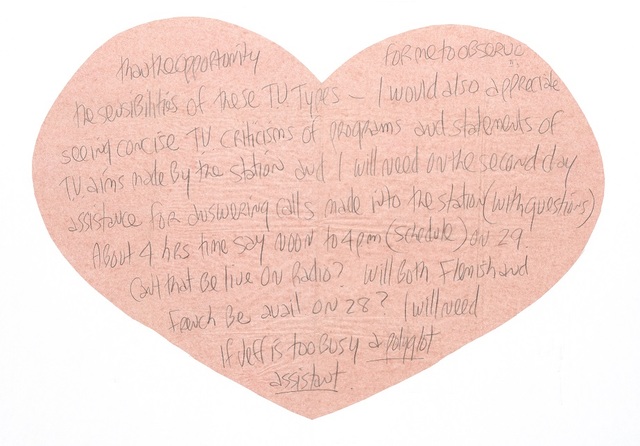 than the opportunity for me to observe
the sensibilities of these TV Types – I would also appreciate
seeing concise TV criticisms of programs and statements of
TV aims made By the station and I will need on the second day
assistance for answering calls made into the station (with questions)
About 4 hrs time say noon to 4pm (schedule) on 29.
Can that Be live on Radio? Will Both Flemish and
French Be avail on 28? I will need
If Jeff is too Busy a polyglot
assistant.